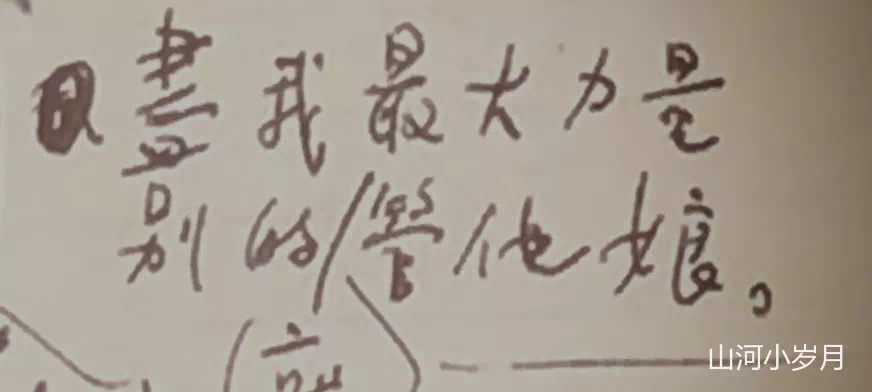 盡我最大力量
别的/管他娘。
山河小岁月